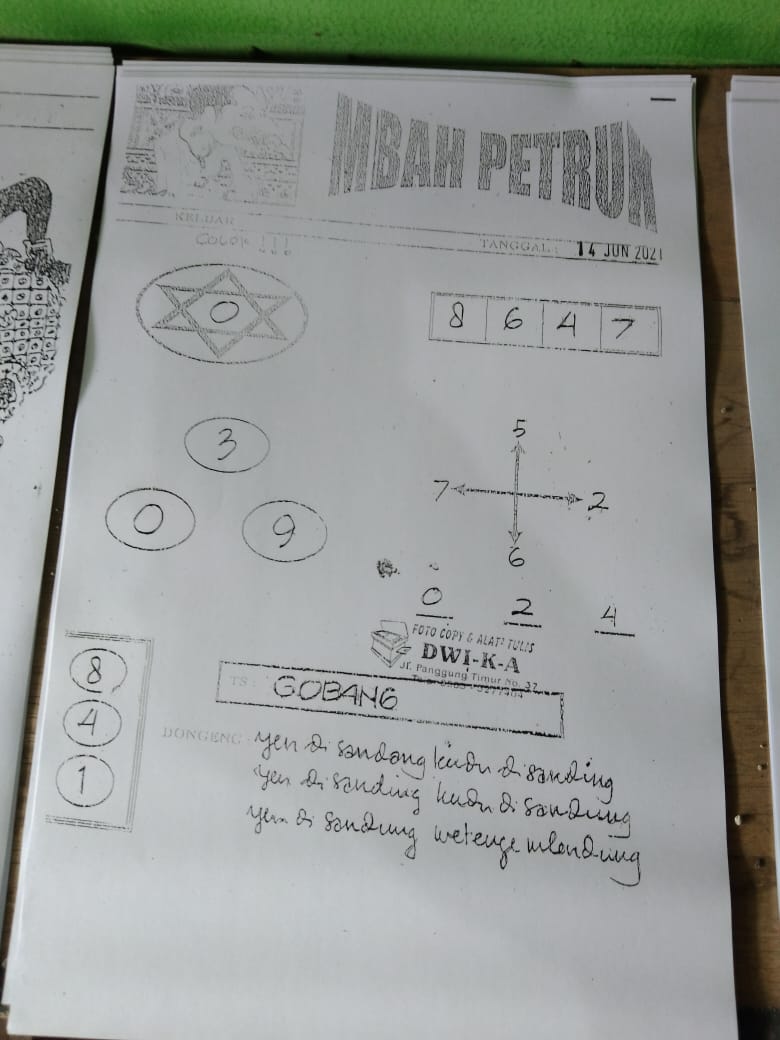 MBAH PETRUK
KELUAR
COLOK !!!
TANGGAL : 14 JUN 2021
0
8 6 4 7
3
0 9
5
7 2
6
0 2 4
FOTO COPY & ALAT² TULIS
DWI-K-A
Jl. Panggung Timur No. 37
8
4
1
TS : GOBANG
DONGENG : yen di sandang kudu disanding
yen di sanding kudu di sandung
yen di sandung wetenge mlendung